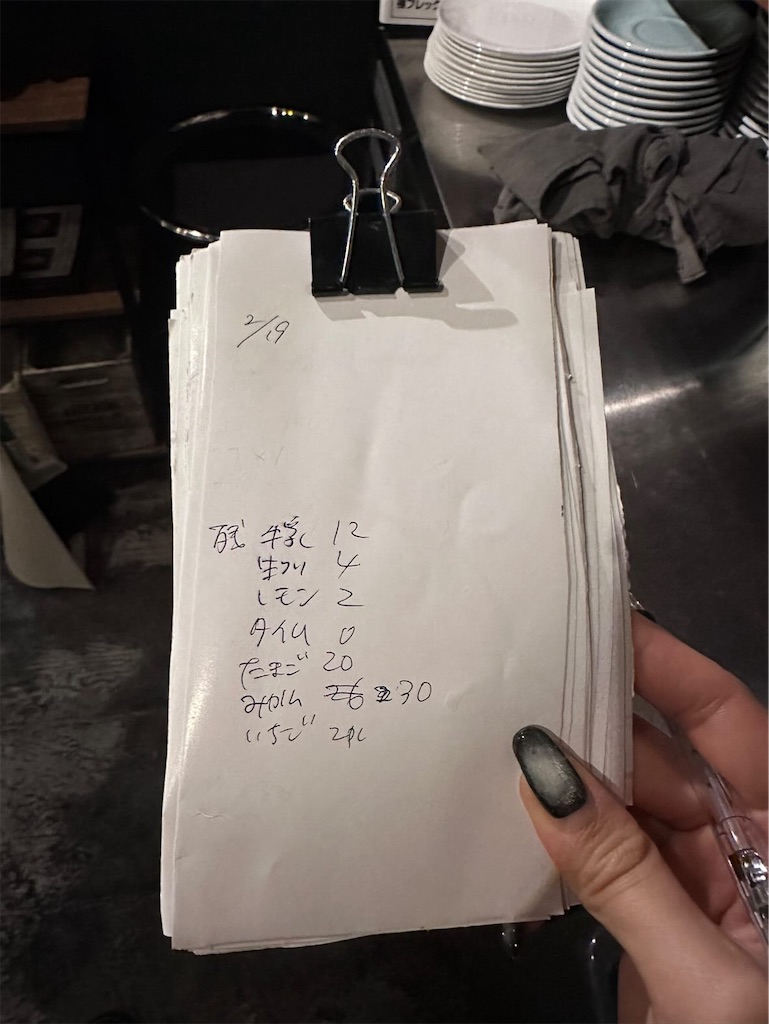 2/19
残 牛乳 12
生クリ 4
レモン 2
タイム 0
たまご 20
みかん 30
いちご 2